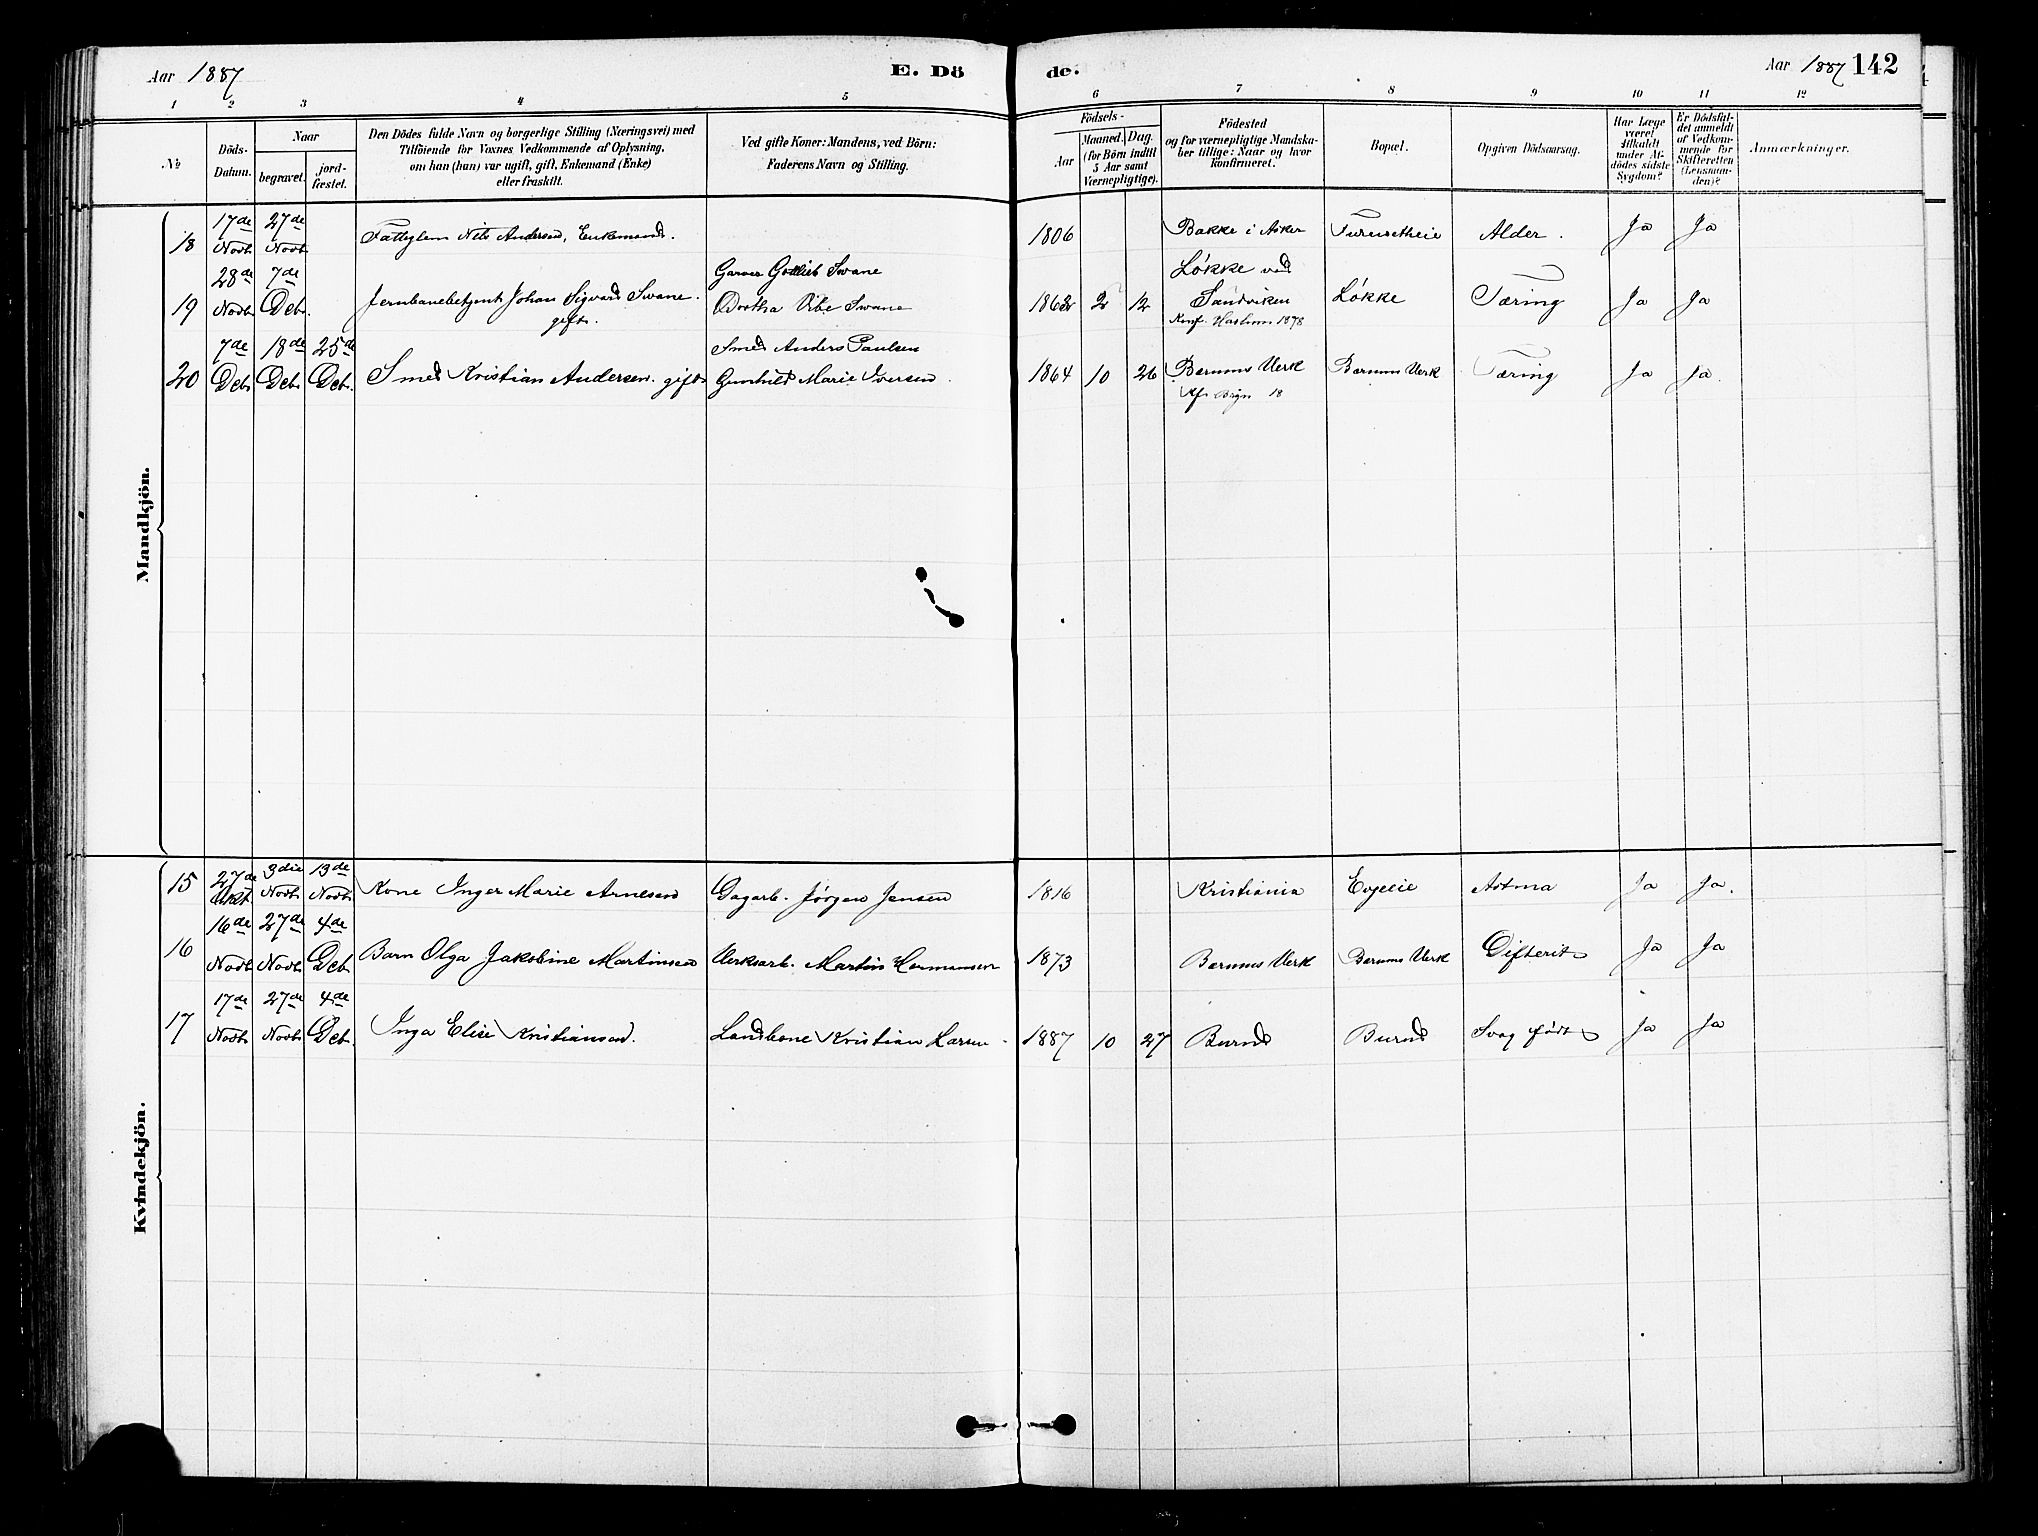 Aar 1887
E. Dö
de.
Aar 1887 142
1 2 3 4 5 6 7 8 9 10 11 12
No
Döds-
Datum.
Naar
begravet.
jord-
fæstet.
Den Dödes fulde Navn og borgerlige Stilling (Næringsvei) med
Tilföiende for Voxnes Vedkommende af Oplysning,
om han (hun) var ugift, gift, Enkemand (Enke)
eller fraskilt.
Ved gifte Koner: Mandens, ved Börn:
Faderens Navn og Stilling.
Födsels-
Aar
Maaned. Dag.
(for Börn indtil
5 Aar samt
Værnepligtige).
Födested
og for værnepligtige Mandska-
ber tillige: Naar og hvor
konfirmeret.
Bopæl.
Opgiven Dödsaarsag.
Har Læge
været
tilkaldt
under Af-
dödes sidste
Sygdom?
Er Dödsfal-
det anmeldt
af Vedkom-
mende for
Skifteretten
(Lensman-
den)?
Anmærkninger.
Mandkjön.
17de 27de
18 Novb Novb Fattiglem Nils Andersen, Enkemand. 1806 Bakke i Asker Alder. Ja Ja
28de 7de Garver Gottlieb Swane Løkke ved
19 Novb Decb. Jernbanebetjent Johan Sigvard Swane. Dorthea Vibe Swane 1862 2 12 Sandviken Løkke Tæring Ja Ja
gift. Konf. Haslum 1878
7de 18de 25de Smed Anders Paulsen
20 Decb Decb Decb. Smed Kristian Andersen. gift Gunhild Marie Iversen. 1864 10 26 Bærums Verk Bærums Verk Tæring Ja Ja.
18
Kvindekjön.
27de 3die 13de
15 Okt Novb Novb Kone Inger Marie Arnesen Dagarb. Jørgen Jensen 1816 Kristiania Astma Ja Ja.
16de 27de 4de
16 Novb Novb Decb Barn Olga Jakobine Martinsen Verksarb. Martin Hermansen 1873 Bærums Verk Bærums Verk Difterit Ja Ja
17de 27de 4de
17 Novb Novb Decb. Inga Elise Kristiansen. Landhone Kristian Larsen 1887 10 27 Burud Burud Svag født Ja Ja